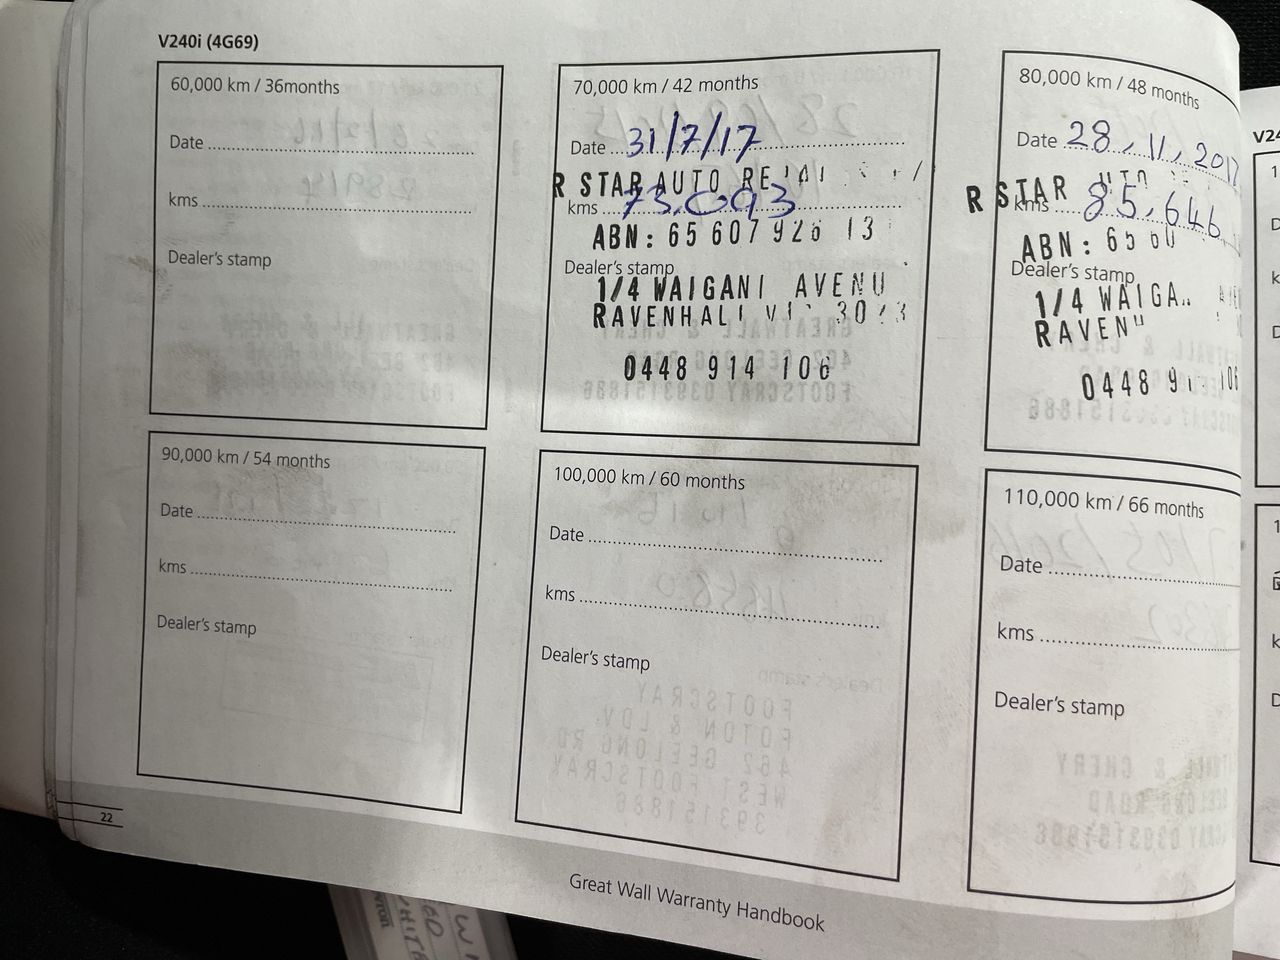 V240i (4G69)
60,000 km / 36months
Date
kms
Dealer's stamp
70,000 km / 42 months
Date 31/7/17
R STAR AUTO
kms 73,093
ABN: 65 607 926 13
Dealer's stamp
1/4 WAIGANI AVENU
RAVENHALL
0448 914 106
80,000 km / 48 months
Date 28.11.2017
R STAR
kms 85,646
ABN: 65 60
Dealer's stamp
1/4 WAIGA
RAVEN
0448 91 106
90,000 km / 54 months
Date
kms
Dealer's stamp
100,000 km / 60 months
Date
kms
Dealer's stamp
110,000 km / 66 months
Date
kms
Dealer's stamp
22
Great Wall Warranty Handbook
V24